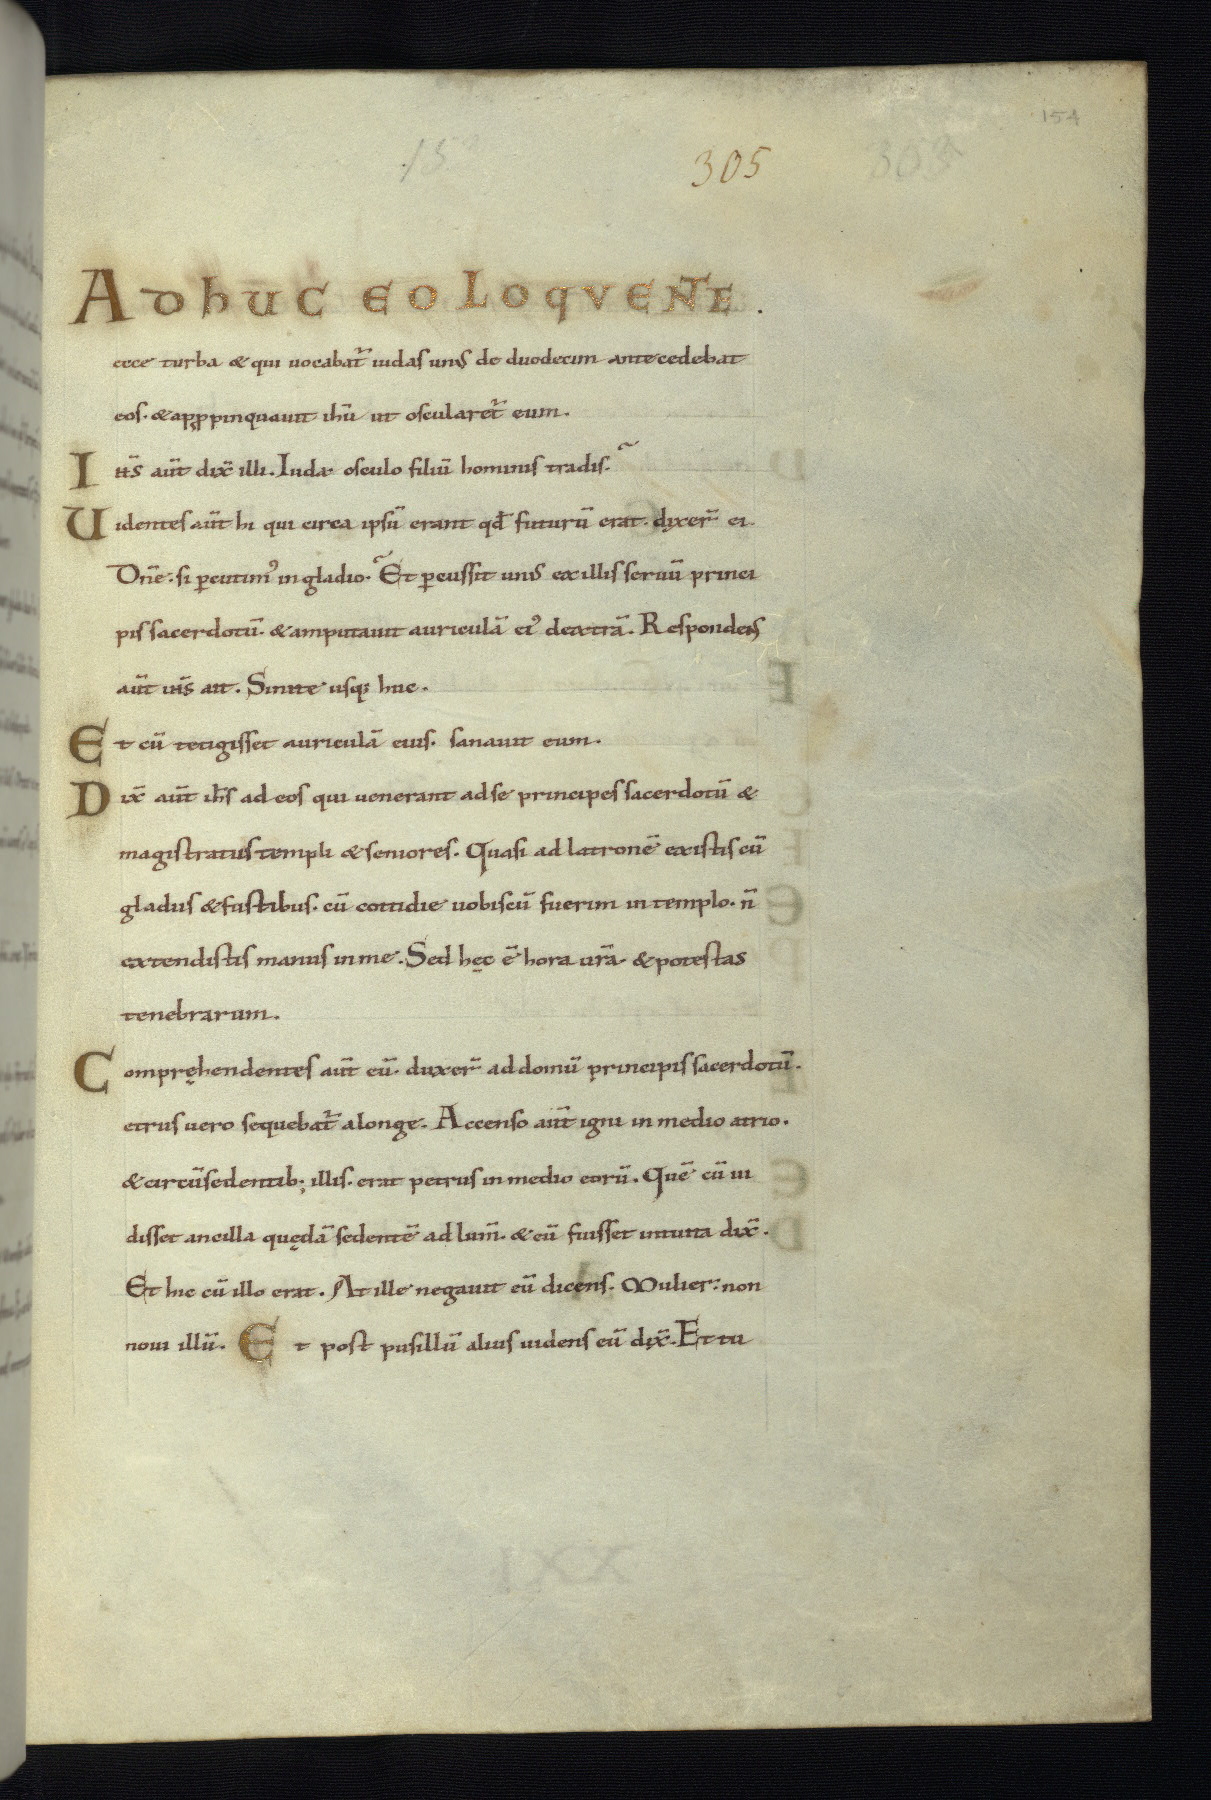 154
305 303
ADHUC EO LOQVENTE.
ecce turba & qui uocabat̃ iudas unus de duodecim antecedebat
eos. & appropinquauit ihũ ut oscularet̃ eum.
Iih̅s aũt dix̃ illi. Iuda osculo filiũ hominis tradis.
Uidentes aũt hi qui circa ipsũ erant qđ futurũ erat. dixer̃ ei.
Dñe. si ꝑcutim᾽ in gladio. Et ꝑcussit unus ex illis seruũ princi
pis sacerdotũ. & amputauit auriculã ei᾽ dextrã. Respondens
aũt ih̅s ait. Sinite usq; huc.
Et cũ tetigisset auriculã eius. sanauit eum.
Dix̃ aũt ih̅s ad eos qui uenerant ad se principes sacerdotũ &
magistratus templi & seniores. Quasi ad latronẽ existis cũ
gladiis & fustibus. cũ cottidie uobiscũ fuerim in templo. ñ
extendistis manus in me. Sed hęc ẽ hora ur̃a & potestas
tenebrarum.
Compręhendentes aũt eũ. duxer̃ ad domũ principis sacerdotũ.
etrus uero sequebat̃ a longe. Accenso aũt igni in medio atrio.
& circũsedentib; illis. erat petrus in medio eorũ. Quẽ cũ ui
disset ancilla quędã sedentẽ ad lum̃. & eũ fuisset intuita dix̃.
Et hic cũ illo erat. At ille negauit eũ dicens. Mulier: non
noui illũ. Et post pusillũ alius uidens eũ dix̃. Et tu